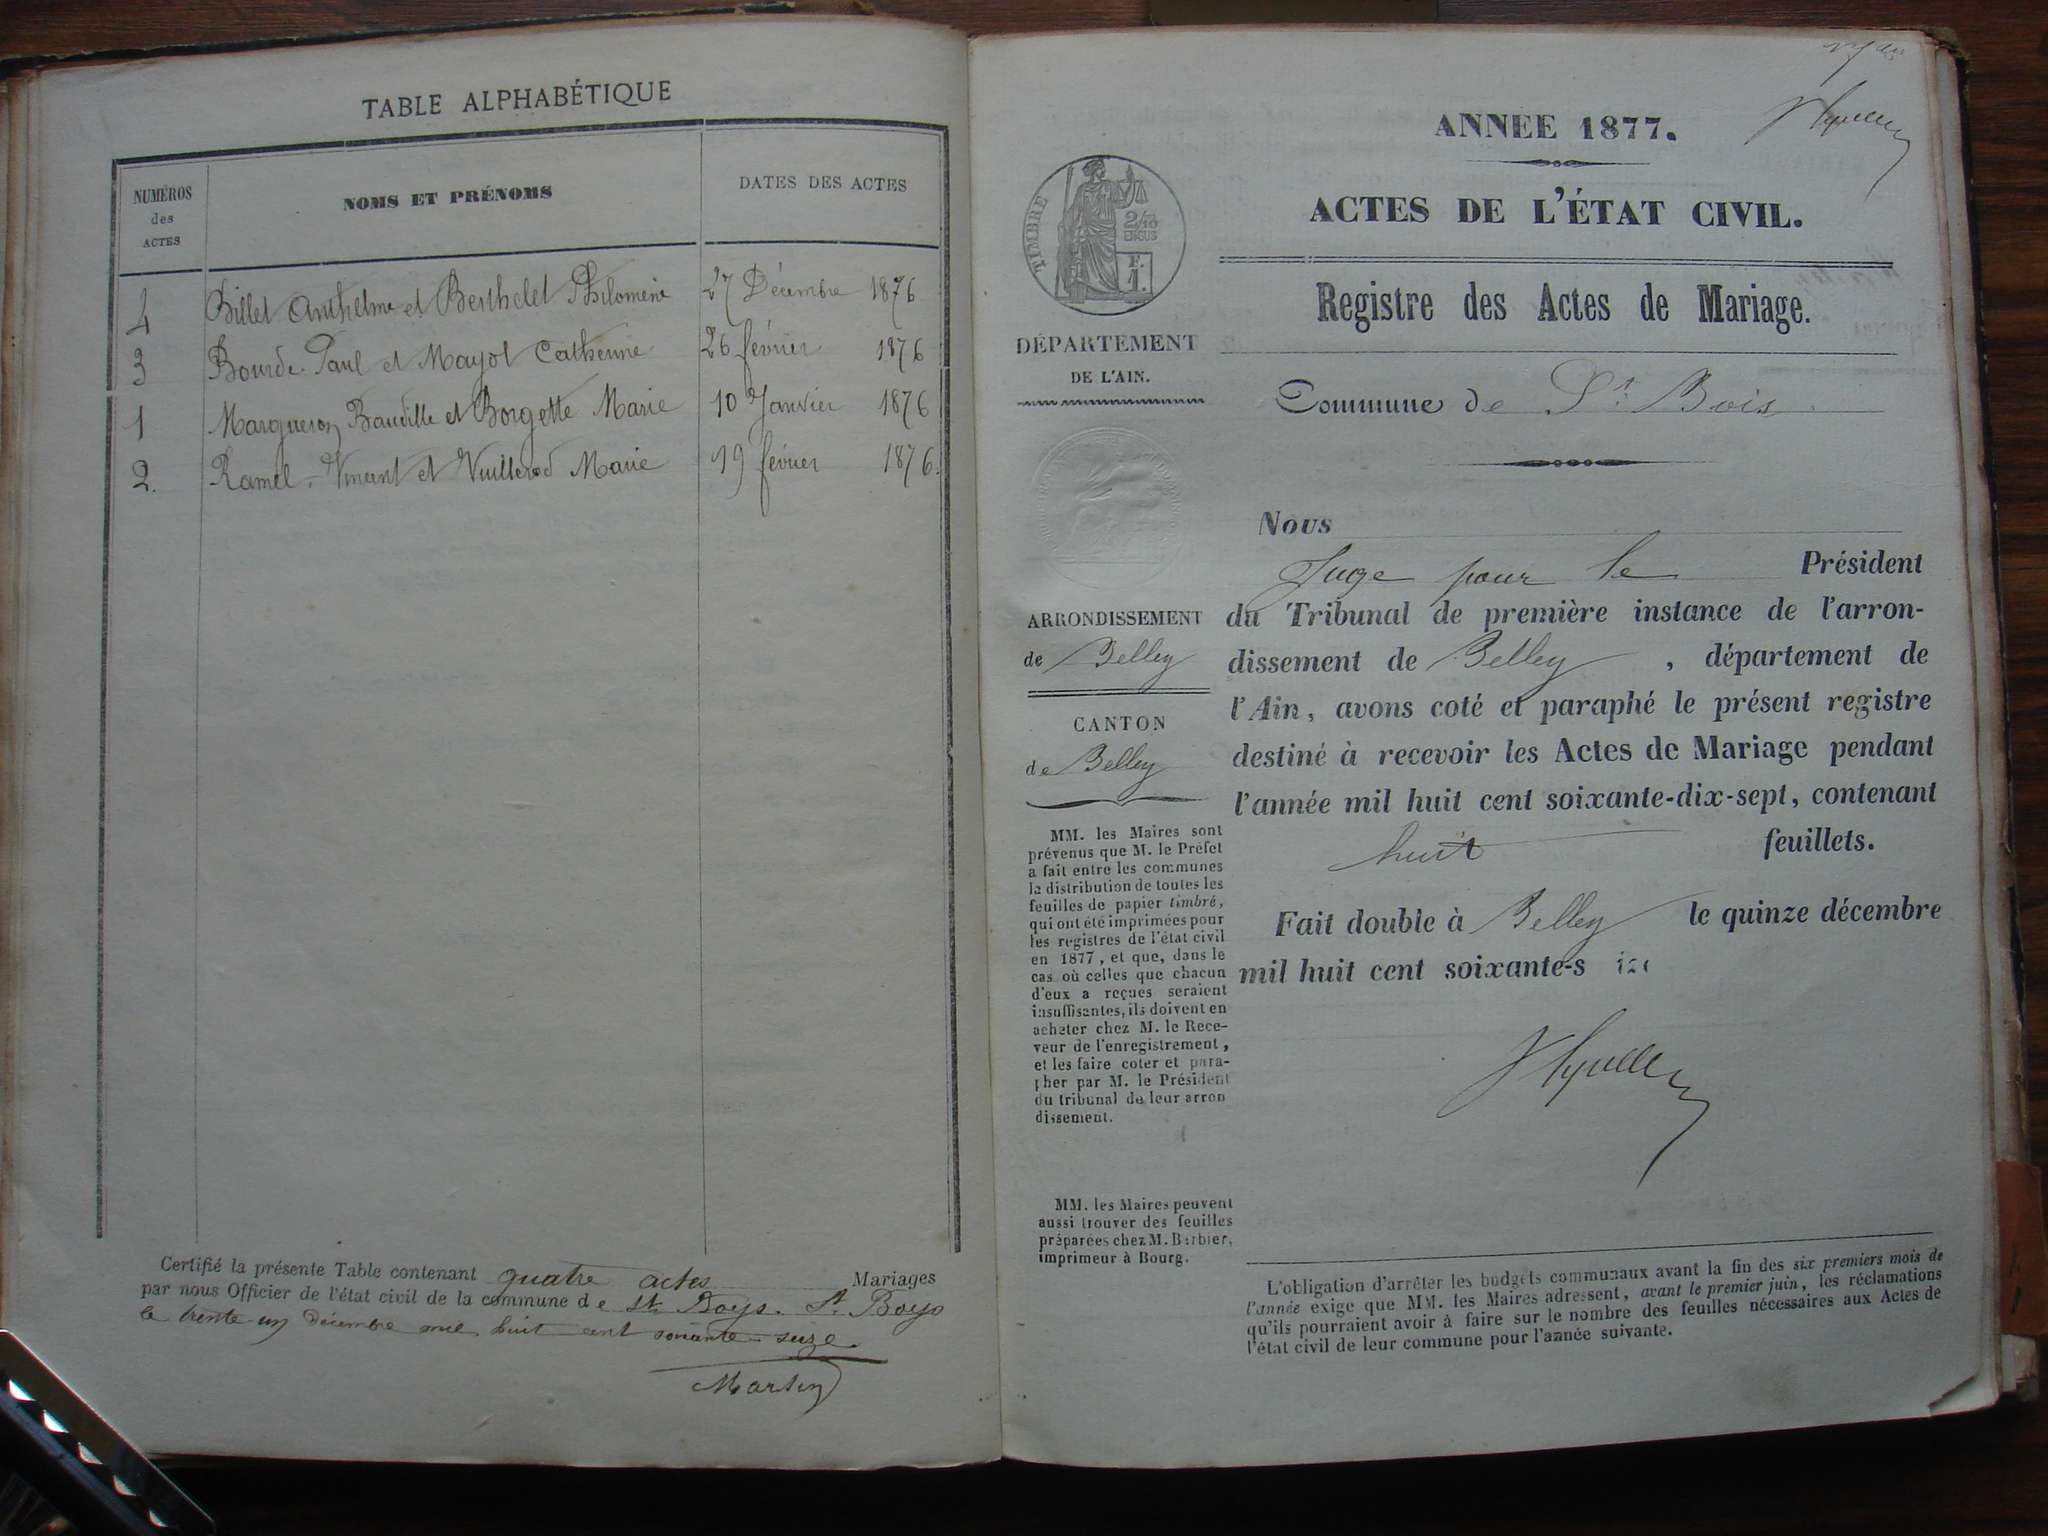 TABLE ALPHABÉTIQUE
NUMÉROS
des
ACTES
NOMS ET PRÉNOMS
DATES DES ACTES
4 Billet Anthelme et Berthelet Philomène 27 Décembre 1876
3 Bourde Paul et Mayot Catherine 26 février 1876
1 Margueron Baudille et Borgette Marie 10 Janvier 1876
2. Ramel Vincent et Vuillerod Marie 19 février 1876.
Certifié la présente Table contenant quatre actes Mariages
par nous Officier de l'état civil de la commune de St Boys. St Boys
le trente un décembre mil huit cent soixante-seize
Martin
ANNEE 1877.
ACTES DE L'ÉTAT CIVIL.
Registre des Actes de Mariage.
Commune de St. Bois
TIMBRE
2/10
EN SUS
F.
1.
DÉPARTEMENT
DE L'AIN.
ARRONDISSEMENT
de Belley
CANTON
de Belley
MM. les Maires sont
prévenus que M. le Préfet
a fait entre les communes
la distribution de toutes les
feuilles de papier timbré,
qui ont été imprimées pour
les registres de l'état civil
en 1877, et que, dans le
cas où celles que chacun
d'eux a reçues seraient
insuffisantes, ils doivent en
acheter chez M. le Rece-
veur de l'enregistrement,
et les faire coter et para-
pher par M. le Président
du tribunal de leur arron
dissement.
MM. les Maires peuvent
aussi trouver des feuilles
préparées chez M. Barbier,
imprimeur à Bourg.
Nous
Juge pour le Président
du Tribunal de première instance de l'arron-
dissement de Belley, département de
l'Ain, avons coté et paraphé le présent registre
destiné à recevoir les Actes de Mariage pendant
l'année mil huit cent soixante-dix-sept, contenant
huit feuillets.
Fait double à Belley le quinze décembre
mil huit cent soixante-s
L'obligation d'arrêter les budgets communaux avant la fin des six premiers mois de
l'année exige que MM. les Maires adressent, avant le premier juin, les réclamations
qu'ils pourraient avoir à faire sur le nombre des feuilles nécessaires aux Actes de
l'état civil de leur commune pour l'année suivante.